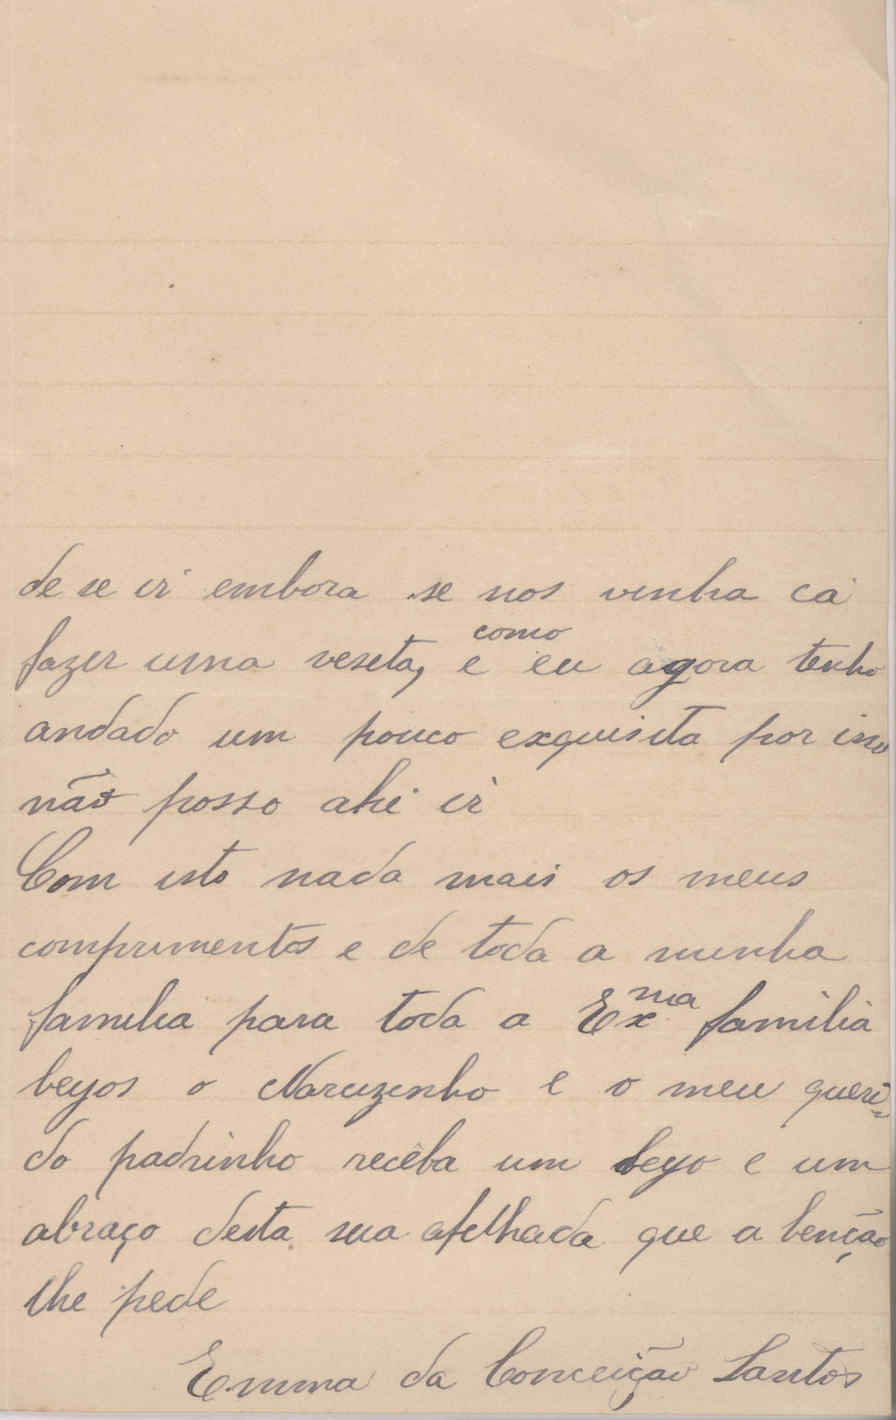 de se ir embora se nos vinha cá
fazer uma veseta, e como eu agora tenho
andado um pouco exquisita por isso
não posso ahi ir
Com isto nada mais os meus
comprimentos e de toda a minha
familia para toda a Exma familia
beijos o Naruzinho e o meu queri-
do padrinho recêba um beijo e um
abraço desta sua afelhada que a benção
lhe pede
Emma da Conceição Santos